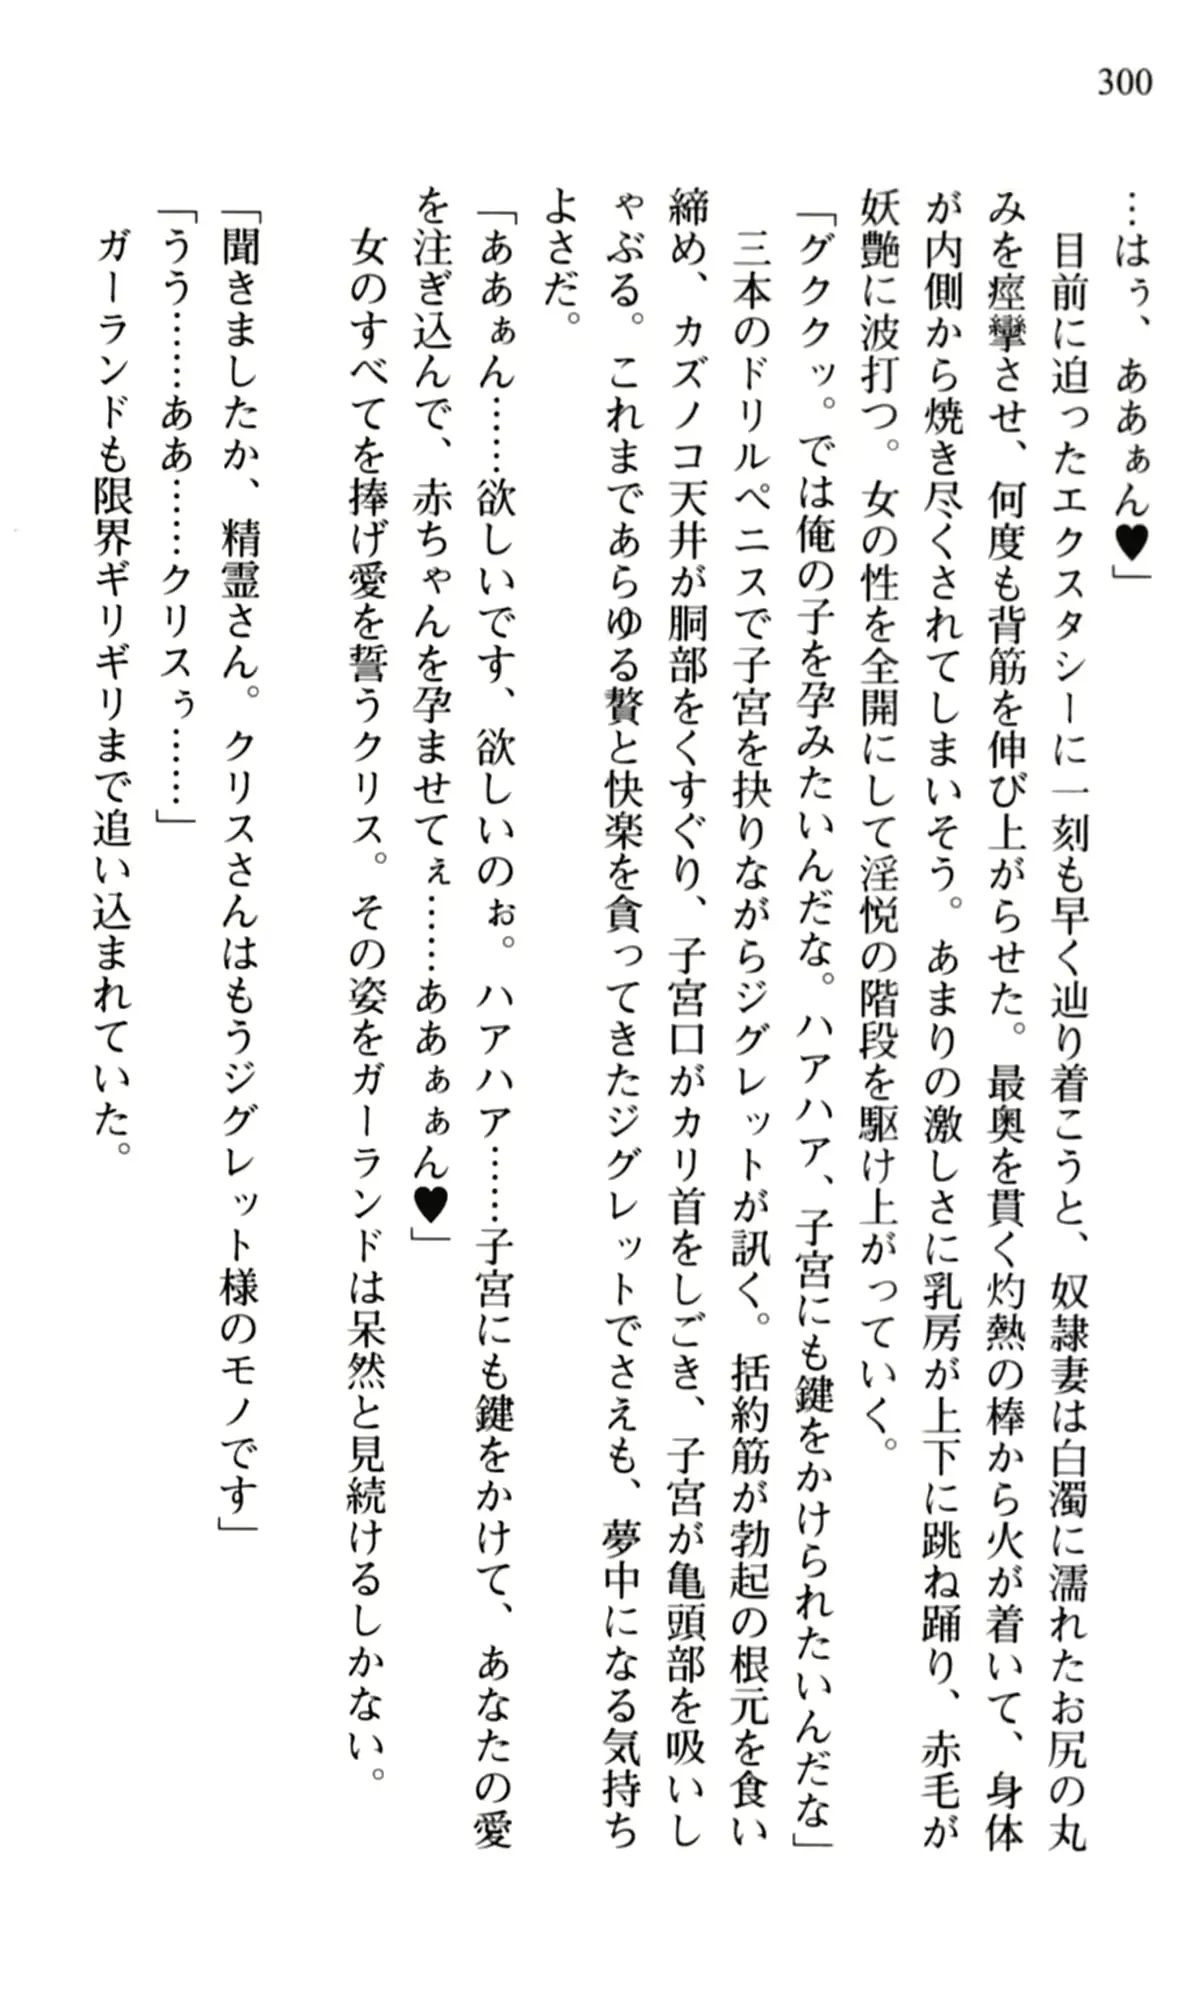 300
…はぅ、ああぁん♥」
　目前に迫ったエクスタシーに一刻も早く辿り着こうと、奴隷妻は白濁に濡れたお尻の丸
みを痙攣させ、何度も背筋を伸び上がらせた。最奥を貫く灼熱の棒から火が着いて、身体
が内側から焼き尽くされてしまいそう。あまりの激しさに乳房が上下に跳ね踊り、赤毛が
妖艶に波打つ。女の性を全開にして淫悦の階段を駆け上がっていく。
「グククッ。では俺の子を孕みたいんだな。ハアハア、子宮にも鍵をかけられたいんだな」
　三本のドリルペニスで子宮を抉りながらジグレットが訊く。括約筋が勃起の根元を食い
締め、カズノコ天井が胴部をくすぐり、子宮口がカリ首をしごき、子宮が亀頭部を吸いし
ゃぶる。これまであらゆる贅と快楽を貪ってきたジグレットでさえも、夢中になる気持ち
よさだ。
「ああぁん……欲しいです、欲しいのぉ。ハアハア……子宮にも鍵をかけて、あなたの愛
を注ぎ込んで、赤ちゃんを孕ませてぇ……ああぁぁん♥」
　女のすべてを捧げ愛を誓うクリス。その姿をガーランドは呆然と見続けるしかない。
「聞きましたか、精霊さん。クリスさんはもうジグレット様のモノです」
「うう……ああ……クリスぅ……」
　ガーランドも限界ギリギリまで追い込まれていた。